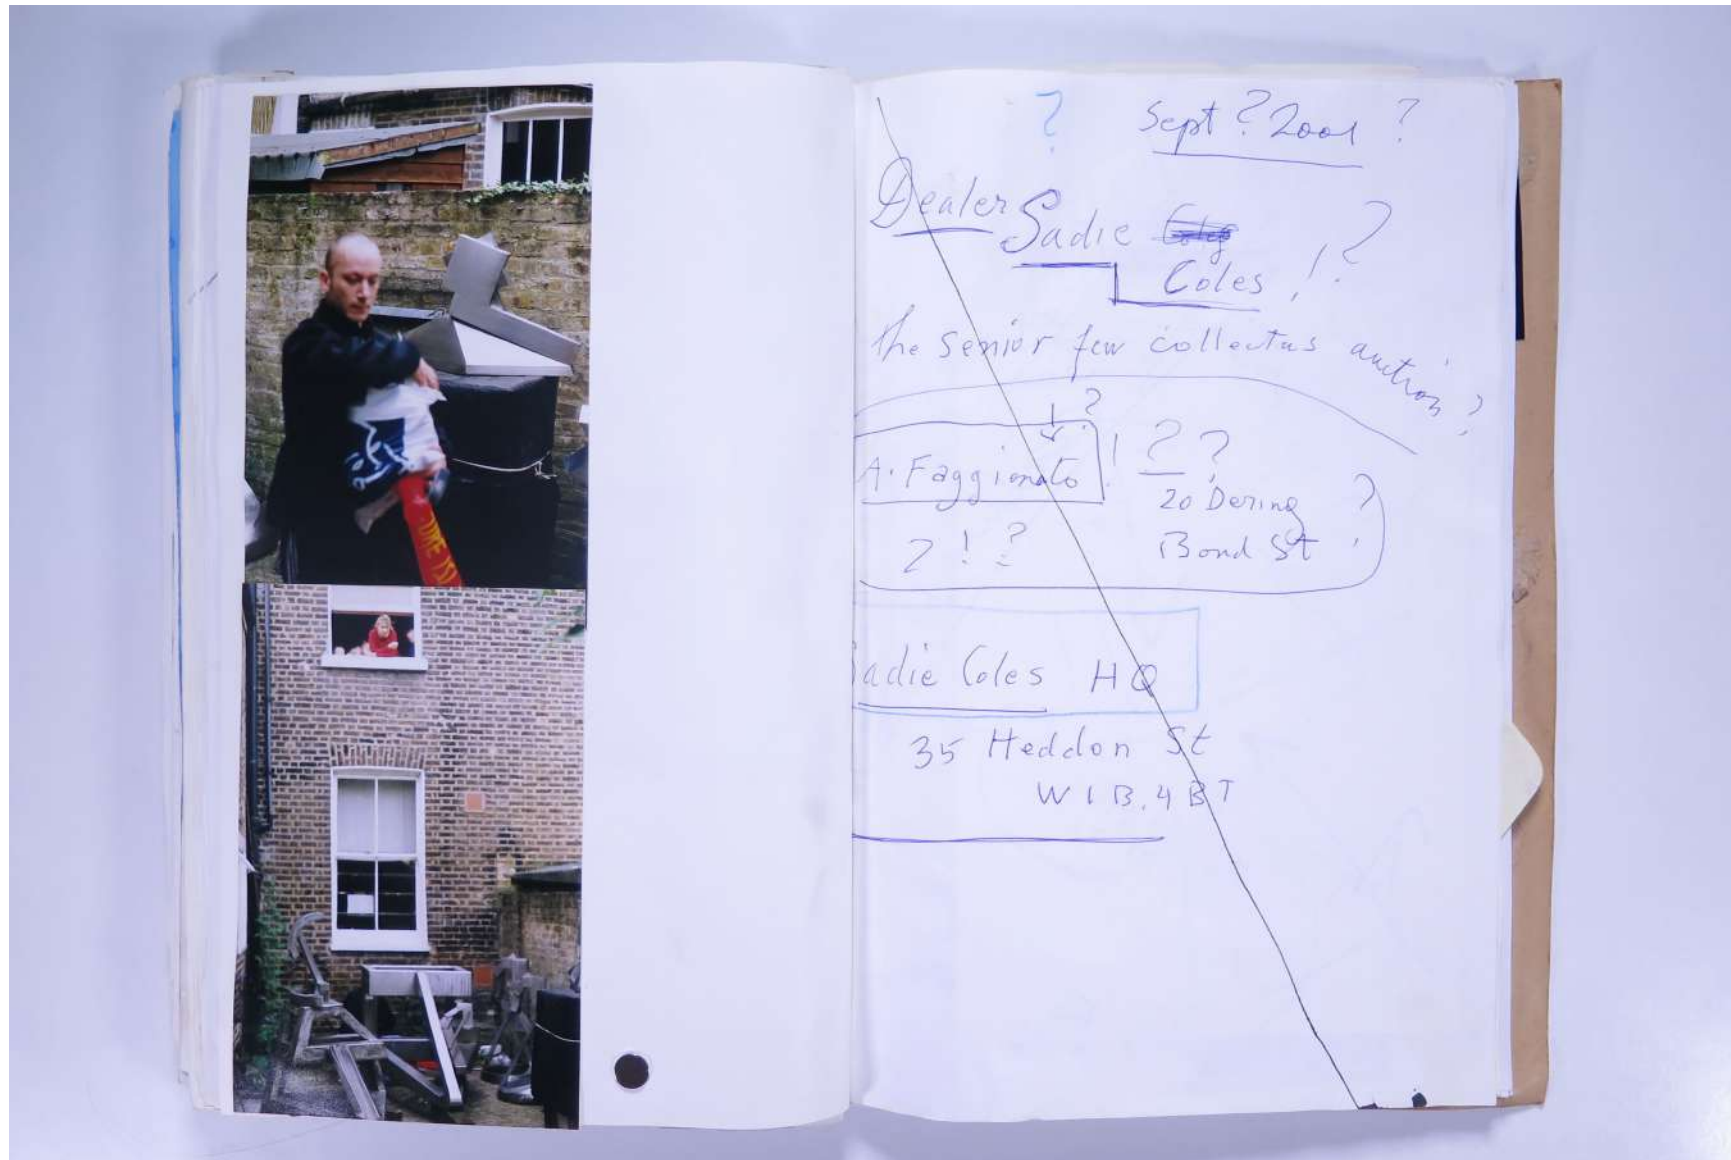 ? Sept ? 2001 ?
Dealer Sadie
Coles ! ?
the senior few collectus auction ?
?
A. Faggionato ! ? ?
20 Dering ?
2 ! ? Bond St
Sadie Coles HQ
35 Heddon St
W1B.4BT